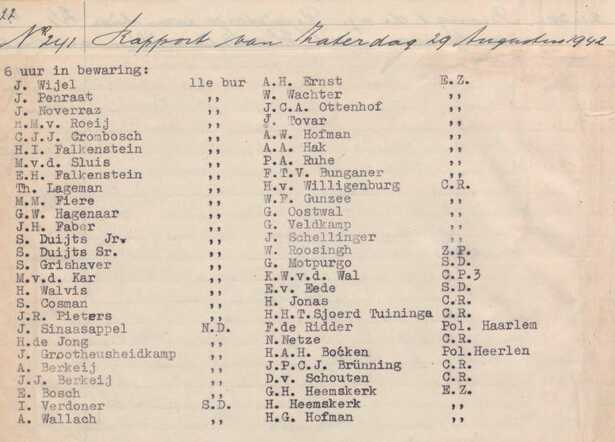 22
Nr 241 Rapport van Zaterdag 29 Augustus 1942
6 uur in bewaring:
J. Wijel 11e bur
J. Penraat ,,
J. Noverraz ,,
M.M.v. Roeij ,,
C.J.J. Crombosch ,,
H.I. Falkenstein ,,
M.v.d. Sluis ,,
E.H. Falkenstein ,,
Th. Lageman ,,
M.M. Fiere ,,
G.W. Hagenaar ,,
J.H. Faber ,,
S. Duijts Jr. ,,
S. Duijts Sr. ,,
S. Grishaver ,,
M.v.d. Kar ,,
H. Walvis ,,
S. Cosman ,,
J.R. Pieters ,,
J. Sinaasappel N.D.
H.de Jong ,,
J. Grootheusheidkamp ,,
A. Berkeij ,,
J.J. Berkeij ,,
E. Bosch ,,
I. Verdoner S.D.
A. Wallach ,,
A.H. Ernst E.Z.
W. Wachter ,,
J.C.A. Ottenhof ,,
J. Tovar ,,
A.W. Hofman ,,
A.A. Hak ,,
P.A. Ruhe ,,
F.T.V. Bunganer ,,
H.v. Willigenburg C.R.
W.F. Gunzee ,,
G. Oostwal ,,
G. Veldkamp ,,
J. Schellinger ,,
W. Roosingh Z.P.
G. Motpurgo S.D.
K.W.v.d. Wal C.P.3
E.v. Eede S.D.
H. Jonas C.R.
H.H.T.Sjoerd Tuininga C.R.
F.de Ridder Pol. Haarlem
N.Netze C.R.
H.A.H. Bocken Pol.Heerlen
J.P.C.J. Brünning C.R.
D.v. Schouten C.R.
G.H. Heemskerk E.Z.
H. Heemskerk ,,
H.G. Hofman ,,